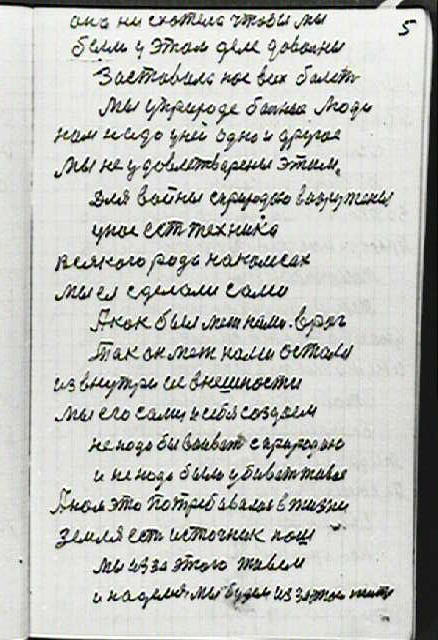 5
она не схотела чтобы мы
были у этом деле довольны
Заставила нас всех болеть
Мы у природе больная люди
нам надо у ней одно и другое
Мы не удовлетворены этим,
Для войны с природою вооружены
у нас есть техника
всякого рода на колесах
мы ея сделали сами
А как был меж нами враг
так он меж нами остался
из внутри и с внешности
мы его сами у себя создаем
не надо бы воевать с природою
и не надо было убивать живое
А нам это потребовалось в жизни
Земля есть источник наш
мы из за этого живем
и надеемся мы будем из за этого жить